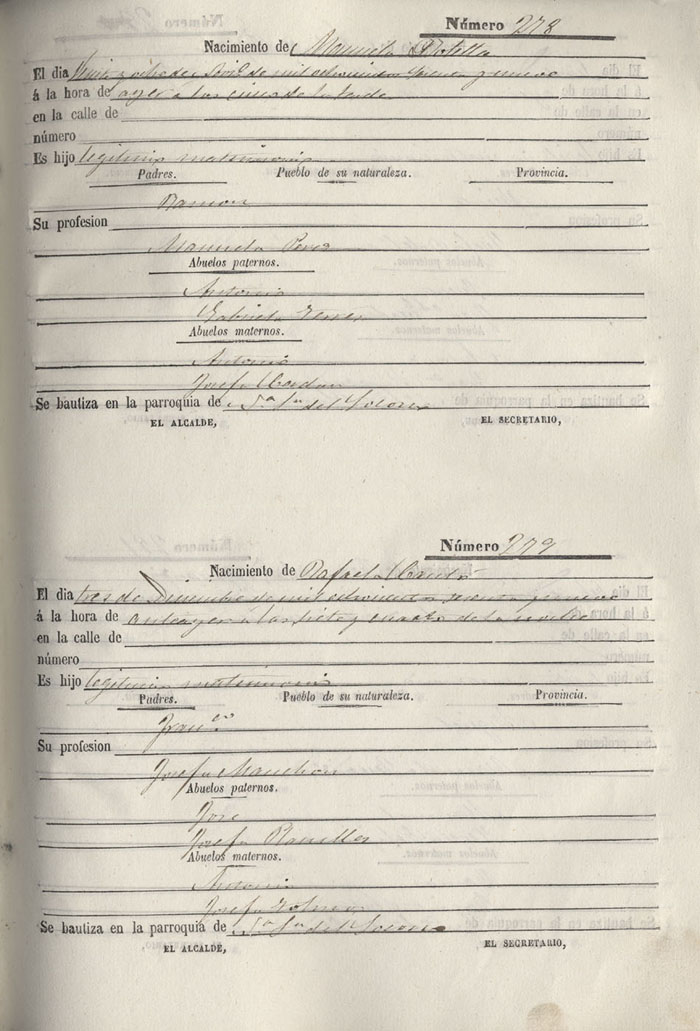 Número 278
Nacimiento de Manuela Botella
El dia veinte y ocho de Abril de mil ochocientos sesenta y nueve
á la hora de ayer a las cinco de la tarde
en la calle de
número
Es hijo legitimo matrimonio
Padres. Pueblo de su naturaleza. Provincia.
Ramon
Su profesion
Manuela Perez
Abuelos paternos.
Antonio
Gabriela Ferrer
Abuelos maternos.
Antonio
Josefa
Se bautiza en la parroquia de S.ª del Socorro
EL ALCALDE, EL SECRETARIO,
Número 279
Nacimiento de Rafaela
El dia tres de Diciembre de mil ochocientos sesenta y nueve
á la hora de anteayer a las siete y cuarto de la noche
en la calle de
número
Es hijo legitimo matrimonio
Padres. Pueblo de su naturaleza. Provincia.
Fran.co
Su profesion
Josefa Manchon
Abuelos paternos.
Jose
Josefa
Abuelos maternos.
Antonio
Josefa
Se bautiza en la parroquia de S.ª del Socorro
EL ALCALDE, EL SECRETARIO,